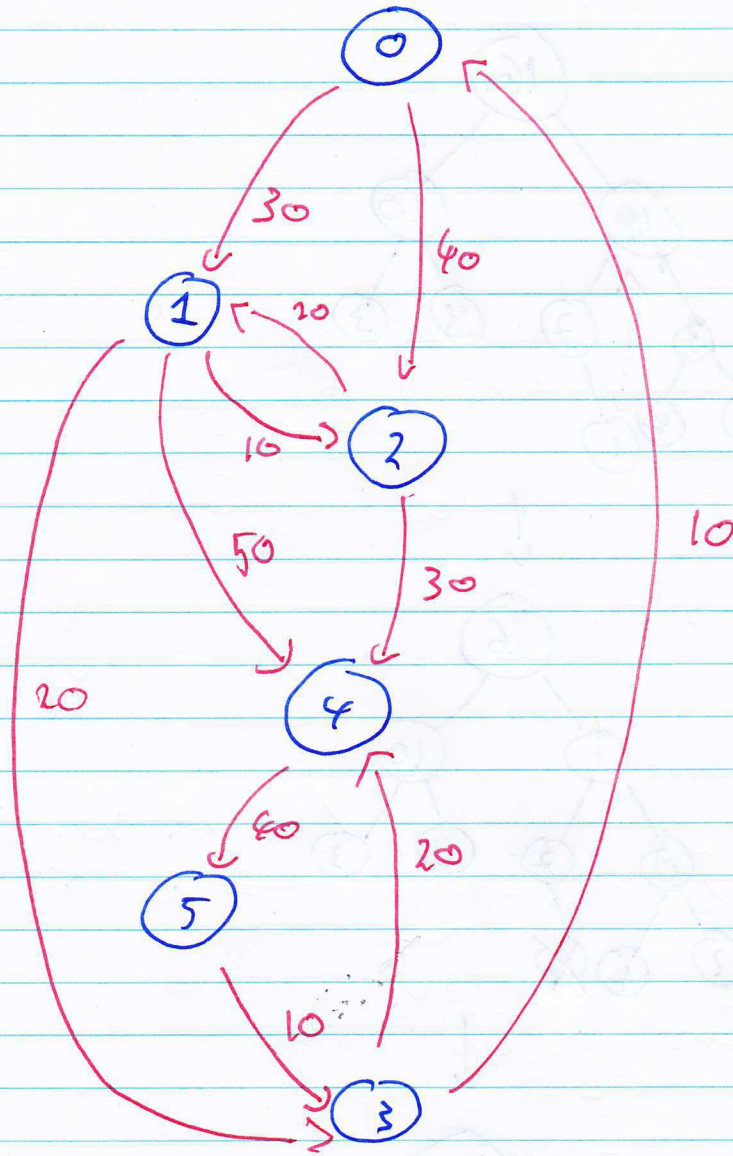 0
30
40
1
20
10
2
50
30
10
20
4
40
20
5
10
3